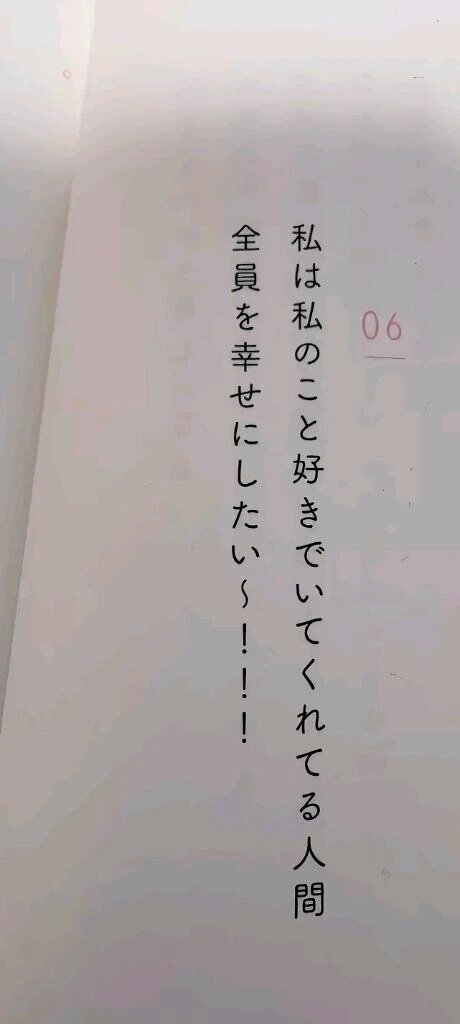 06
私は私のこと好きでいてくれてる人間
全員を幸せにしたい〜！！！